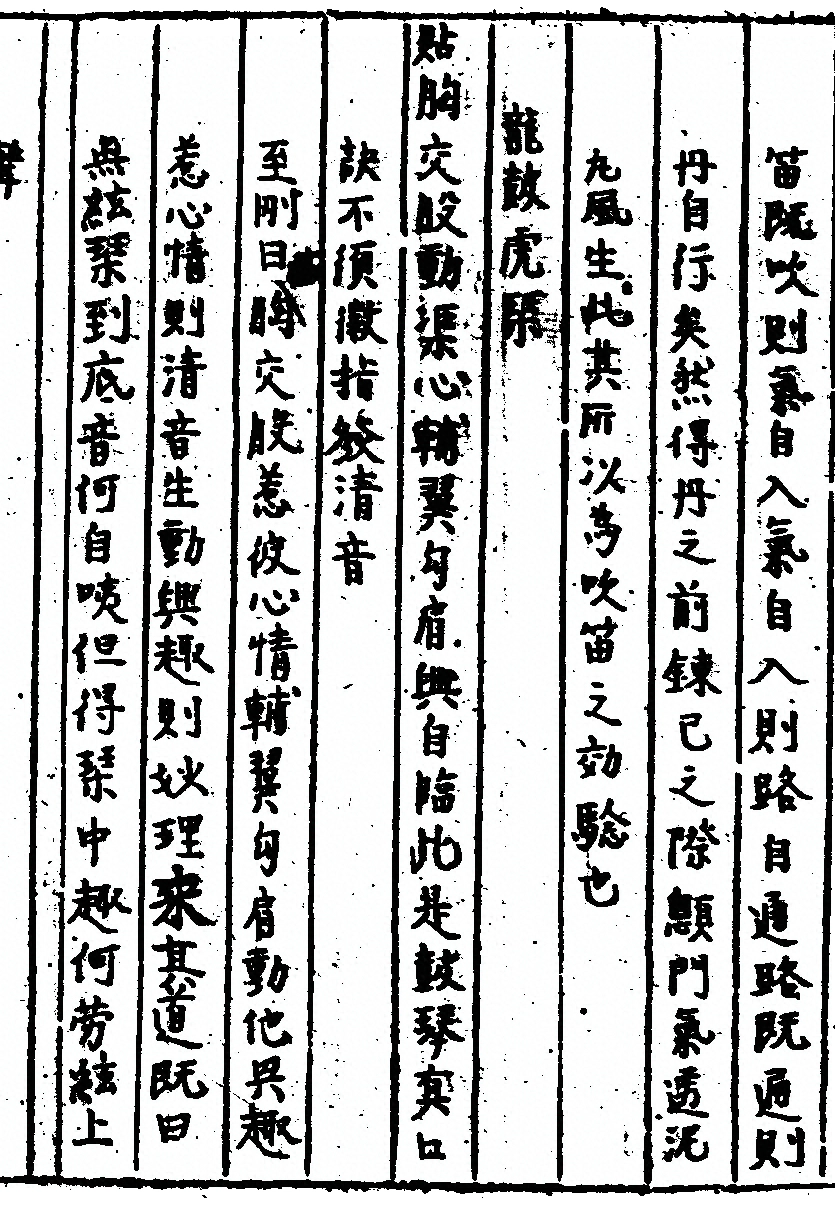 笛既吹則氣自入氣自入則路自通路既通則
丹自行矣然得丹之前鍊己之際顖門氣透泥
九風生此其所以為吹笛之効驗也
龍鼓虎琴
貼胸交股動渠心輔翼勾肩興自臨此是鼓琴真口
訣不須徽指發清音
至剛曰胸交股惹彼心情輔翼勾肩動他興趣
惹心情則清音生動興趣則妙理來其道既曰
無絃琴到底音何自咦但得琴中趣何劳絃上
聲